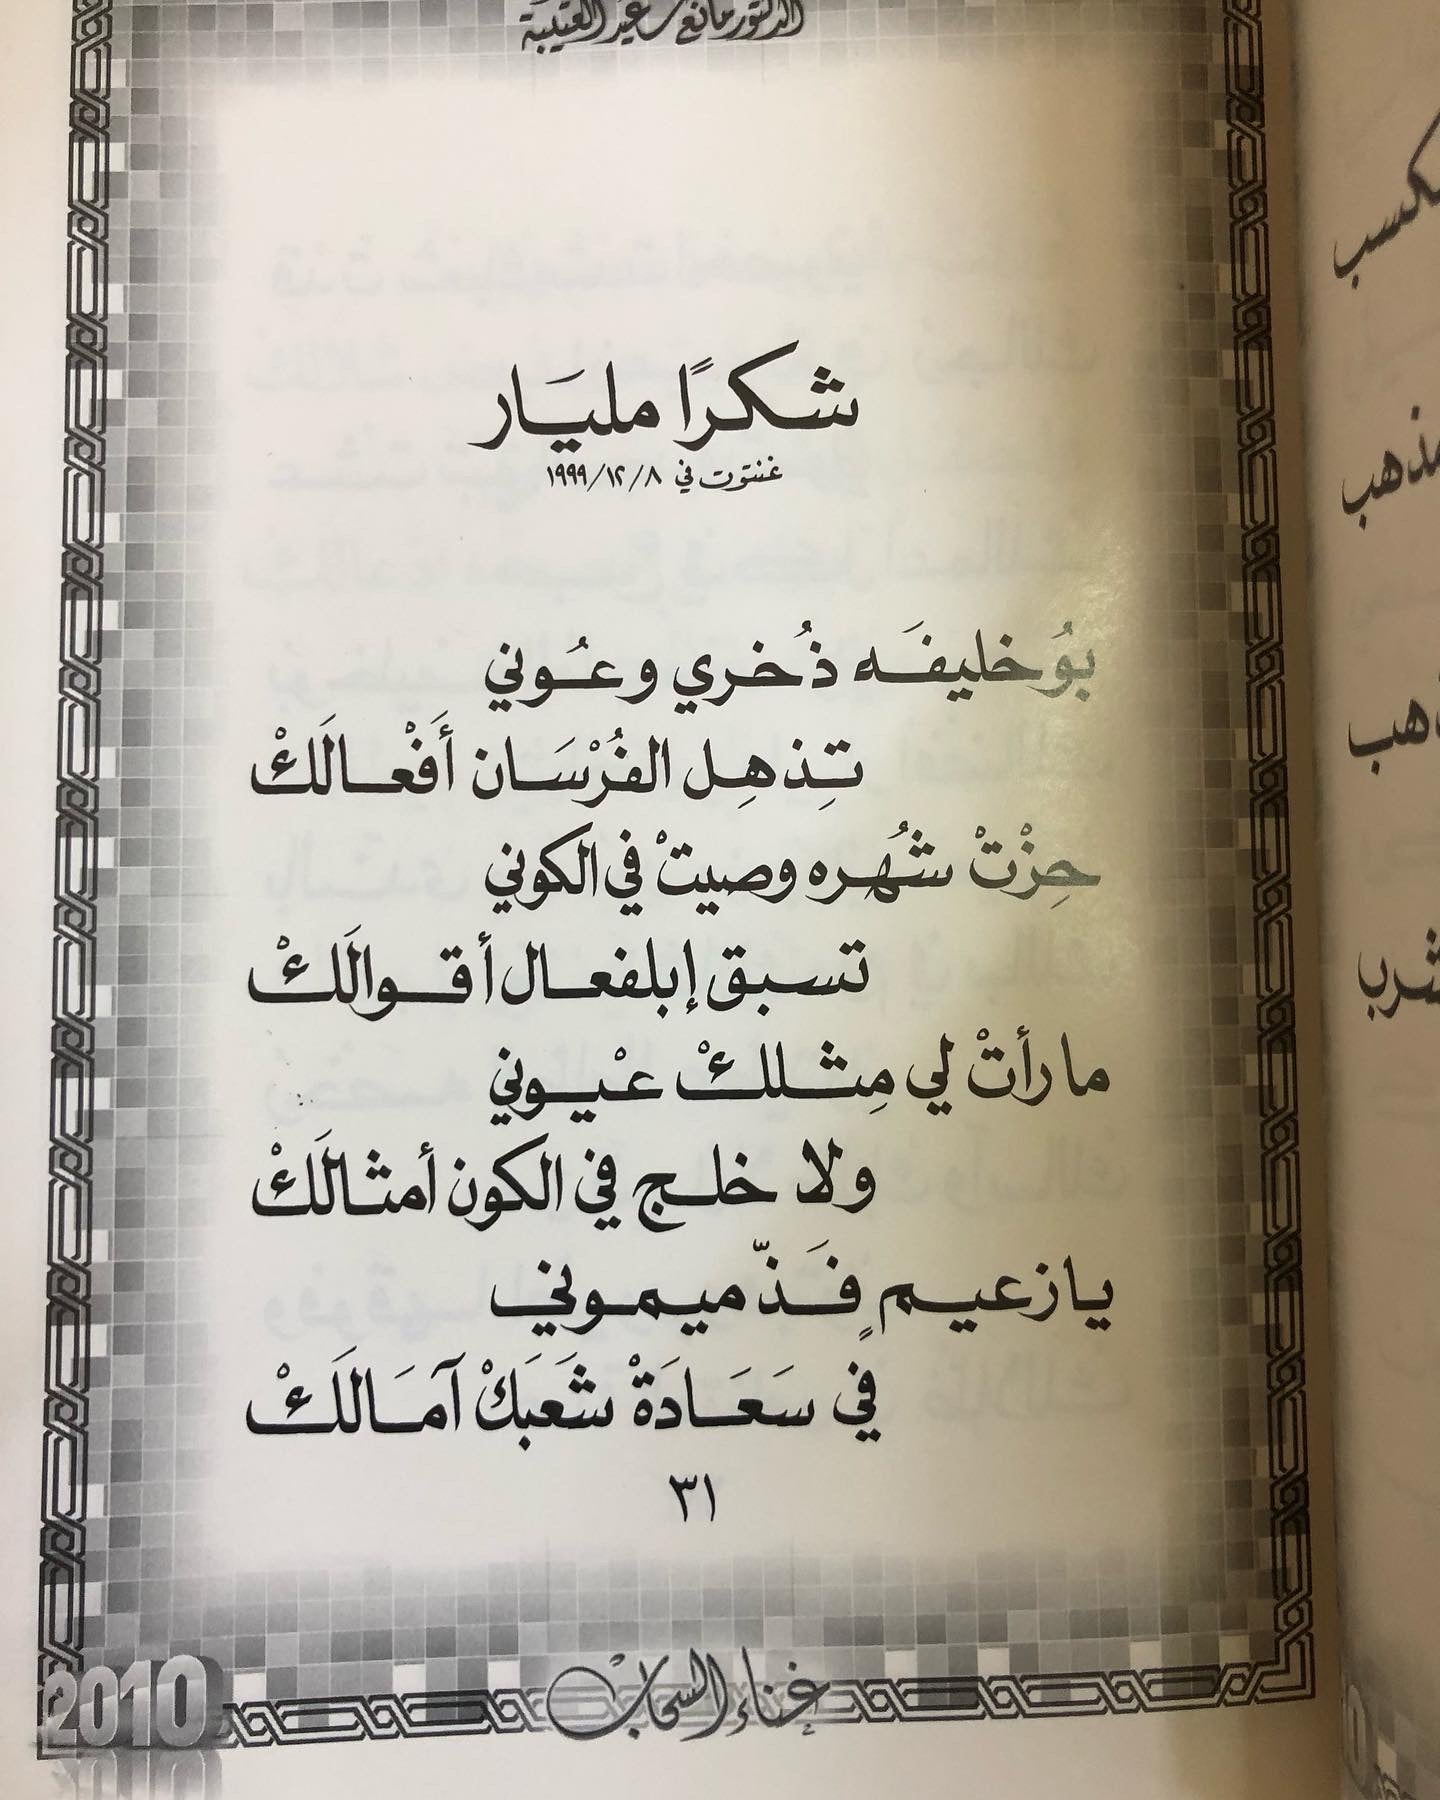 الدكتور مانع سعيد العتيبة
شكرًا مليَار
غنتوت في ٨/١٢/١٩٩٩
بوُخليفَه ذُخري وعُوني
تِذهِل الفُرْسَان أَفْعالَكْ
حِزْتْ شُهره وصيتْ في الكوني
تسبق إبلفعال أقوالَكْ
ما رأتْ لي مِثلكْ عيْوني
ولا خلج في الكون أمثالَكْ
يا زعيمٍ فَذّ ميموني
في سَعَادَةْ شَعَبَكْ آمَالَكْ
٣١
غناء السحاب
2010
كسب
مذهب
هب
شرب